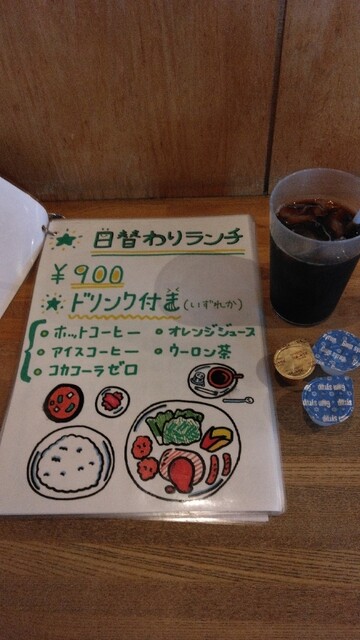 日替わりランチ
¥900
ドリンク付き(いずれか)
ホットコーヒー
オレンジジュース
アイスコーヒー
ウーロン茶
コカコーラゼロ